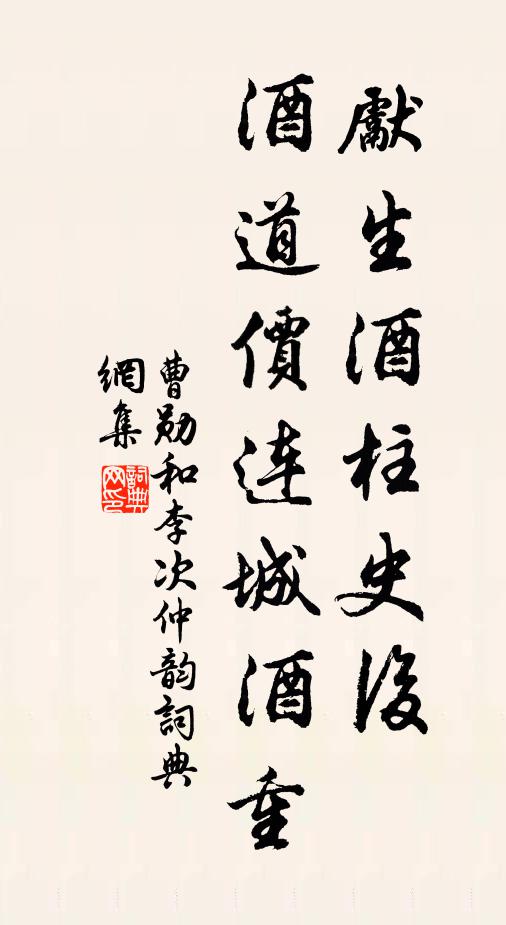 獻生酒柱史後
酒道價連城酒重
曹勛和李次仲韵詞典
網集
詞典網印